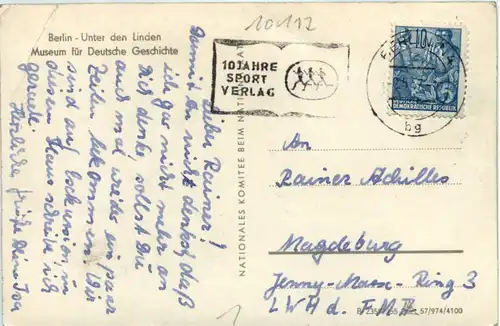 Berlin - Unter den Linden
Museum für Deutsche Geschichte
10 1 12
10 JAHRE
SPORT
VERLAG
BERLIN
bg
DEUTSCHE
DEMOKRATISCHE REPUBLIK
Lieber Rainer!
Damit du nicht denkst, daß
ich gar nicht mehr an
Dich denke sollst Du
auch mal wieder ein paar
Zeilen bekommen. Wir
sind auf Exkursion in
diesem Haus schreibe ich
gerade.
Herzliche Grüße Deine
NATIONALES KOMITEE BEIM NATIONALRAT
An
Rainer Achilles
Magdeburg
Jenny-Marx-Ring 3
LWH d.
57/974/4100